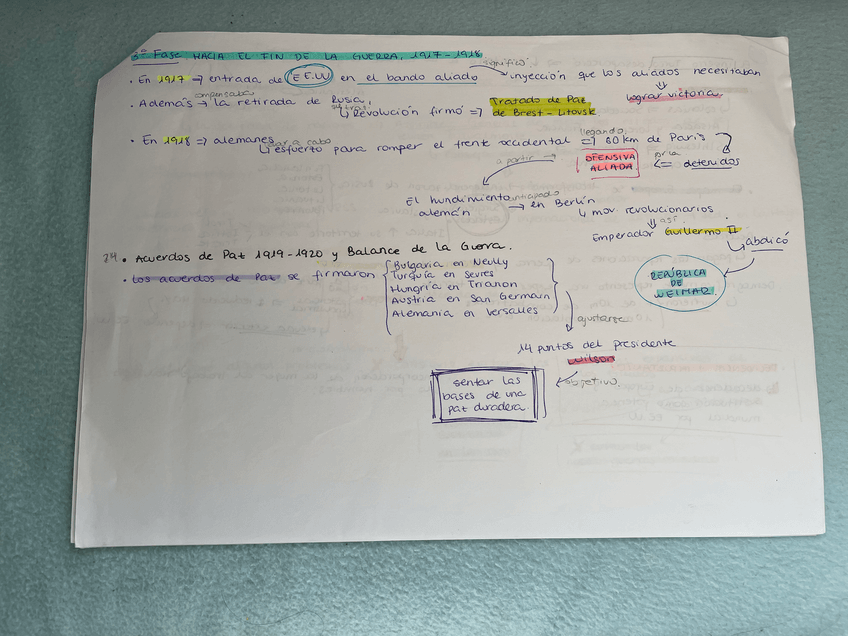 3º Fase HACIA EL FIN DE LA GUERRA, 1917-1918
significó
· En 1917 → entrada de EE.UU en el bando aliado → inyección que los aliados necesitaban
⇓
lograr victoria.
compensaba
· Además → la retirada de Rusia,
↳ Revolución firmó ⇒ Tratado de Paz
de Brest-Litovsk
· En 1918 ⇒ alemanes
↳ esfuerzo para romper el frente occidental ⇒ 80 km de París
llegando
a partir
OFENSIVA
ALIADA
⇐ por la
detenidos
El hundimiento anticipado → en Berlín
alemán
↳ mov. revolucionarios
⇓ así
Emperador Guillermo II
↳ abdicó
REPÚBLICA
DE
WEIMAR.
24. Acuerdos de Paz 1919-1920 y Balance de la Guerra.
· Los acuerdos de Paz se firmaron
Bulgaria en Neully
Turquía en Sevres
Hungría en Trianon
Austria en San Germain
Alemania en Versalles
ajustarse
14 puntos del presidente
Wilson
objetivo.
sentar las
bases de una
paz duradera.